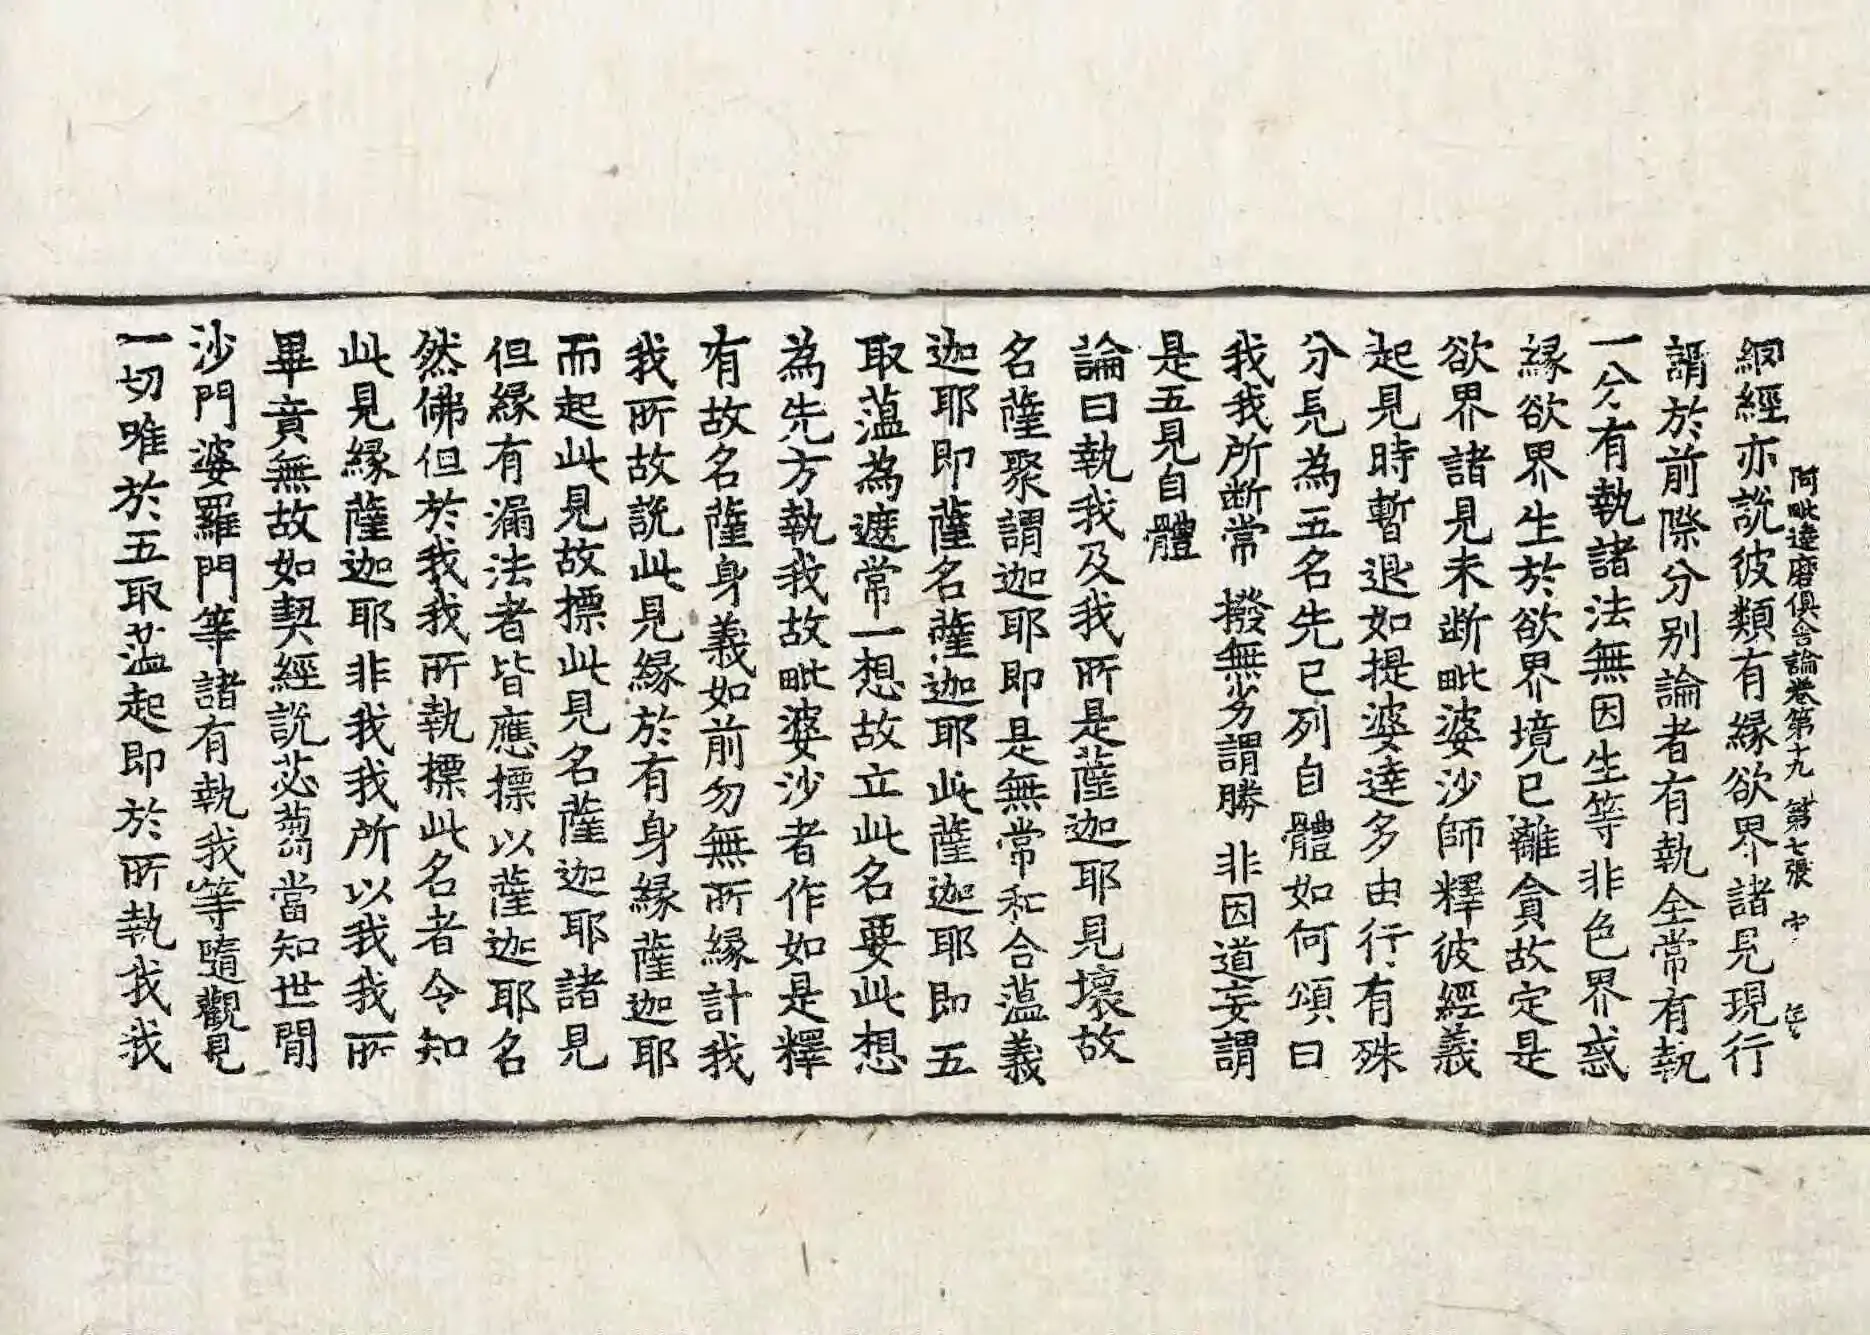 阿毗達磨俱舍論卷第十九 第七張 中
網經亦說彼類有緣欲界諸見現行
謂於前際分別論者有執全常有執
一分有執諸法無因生等非色界惑
緣欲界生於欲界境已離貪故定是
欲界諸見未斷毗婆沙師釋彼經義
起見時暫退如提婆達多由行有殊
分見為五名先已列自體如何頌曰
我我所斷常 撥無劣謂勝 非因道妄謂
是五見自體
論曰執我及我所是薩迦耶見壞故
名薩聚謂迦耶即是無常和合蘊義
迦耶即薩名薩迦耶此薩迦耶即五
取蘊為遮常一想故立此名要此想
為先方執我故毗婆沙者作如是釋
有故名薩身義如前勿無所緣計我
我所故說此見緣於有身緣薩迦耶
而起此見故摽此見名薩迦耶諸見
但緣有漏法者皆應摽以薩迦耶名
然佛但於我我所執摽此名者令知
此見緣薩迦耶非我我所以我我所
畢竟無故如契經說苾蒭當知世間
沙門婆羅門等諸有執我等隨觀見
一切唯於五取蘊起即於所執我我